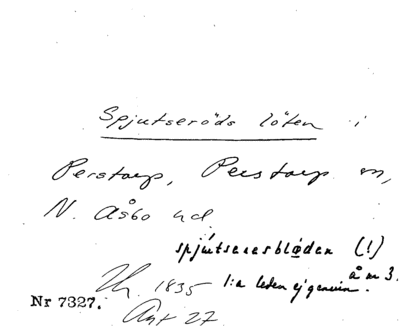 Spjutseröds löten i
Perstorp, Perstorp sn,
N. Åsbo hd.
spjútseresbløden (!)
å m 3.
Th. 1835 1:a leden ej genuin.
Nr 7327. Avt 27